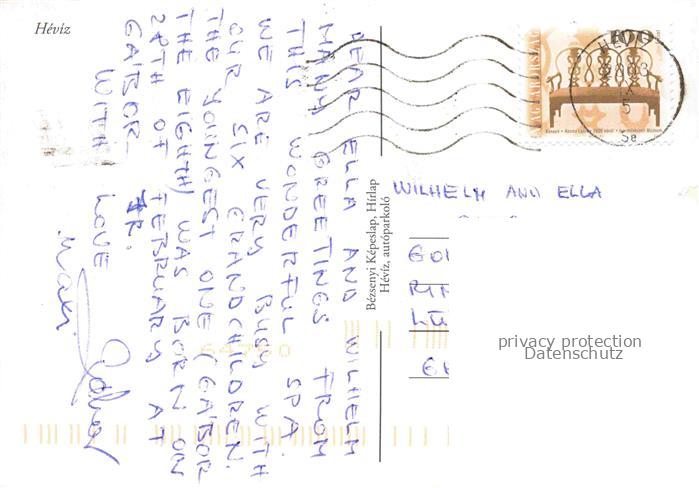 Hévíz
DEAR ELLA AND WILHELM
MANY GREETINGS FROM
THIS WONDERFUL SPA.
WE ARE VERY BUSY WITH
OUR SIX GRANDCHILDREN.
THE YOUNGEST ONE (GÁBOR
THE EIGHTH) WAS BORN ON
28TH OF FEBRUARY AT
GÁBOR JR.
WITH LOVE
Bézsenyi Képeslap, Hírlap
Hévíz, autóparkoló
MAGYARORSZÁG
100
WILHELM AND ELLA
64760
privacy protection
Datenschutz